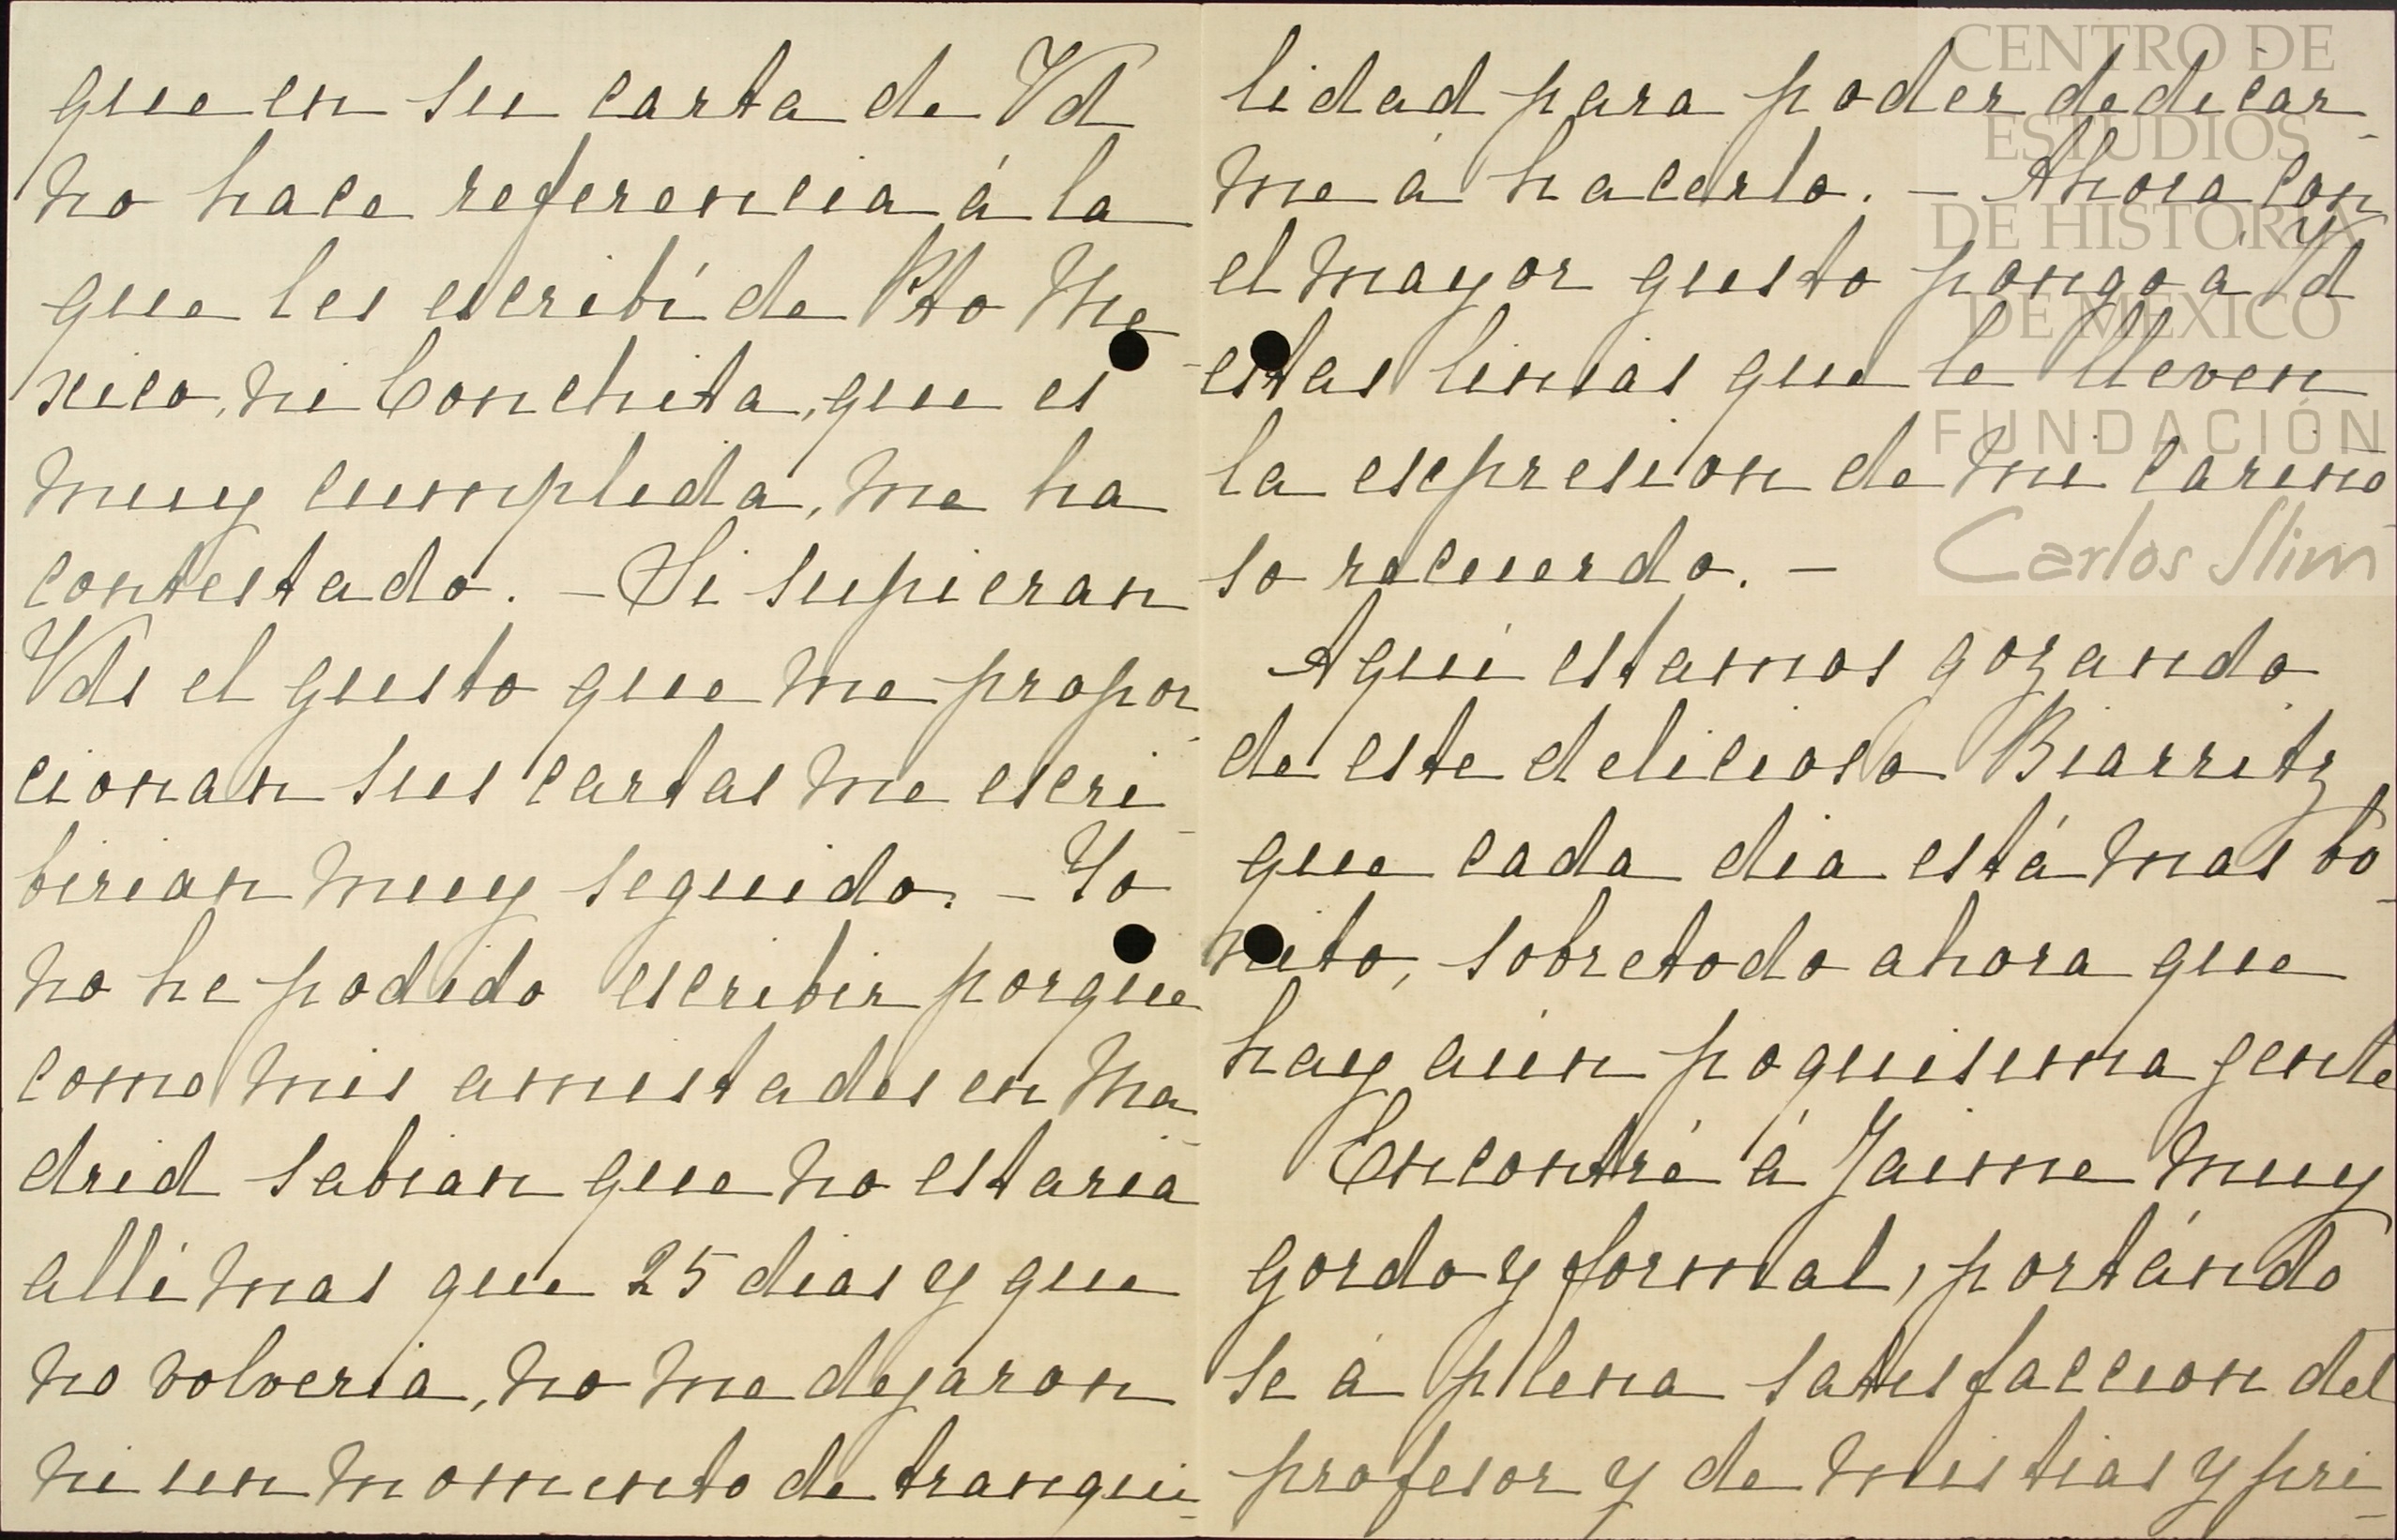 que en su carta de Vd
no hace referencia á la
que les escribí de Pto Me
xico, ni Conchita, que es
muy cumplida, me ha
contestado. – Si supieran
Vds el gusto que me propor-
cionan sus cartas me escri-
birian muy seguido. – Yo
no he podido escribir porque
como mis amistades en Ma-
drid sabian que no estaria
allí mas que 25 dias y que
no volveria, no me dejaron
ni un momento de tranqui-
lidad para poder dedicar-
me á hacerlo. – Ahora con
el mayor gusto pongo á Vd
estas linias que le lleven
la espresion de mi cariño-
so recuerdo. –
Aquí estamos gozando
de este delicioso Biarritz
que cada dia está mas bo-
nito, sobretodo ahora que
hay aún poquisima gente
Encontré á Jaime muy
gordo y formal, portándo
se á plena satisfaccion del
profesor y de mis tias y pri-
CENTRO DE
ESTUDIOS
DE HISTORIA
DE MÉXICO
FUNDACIÓN
Carlos Slim